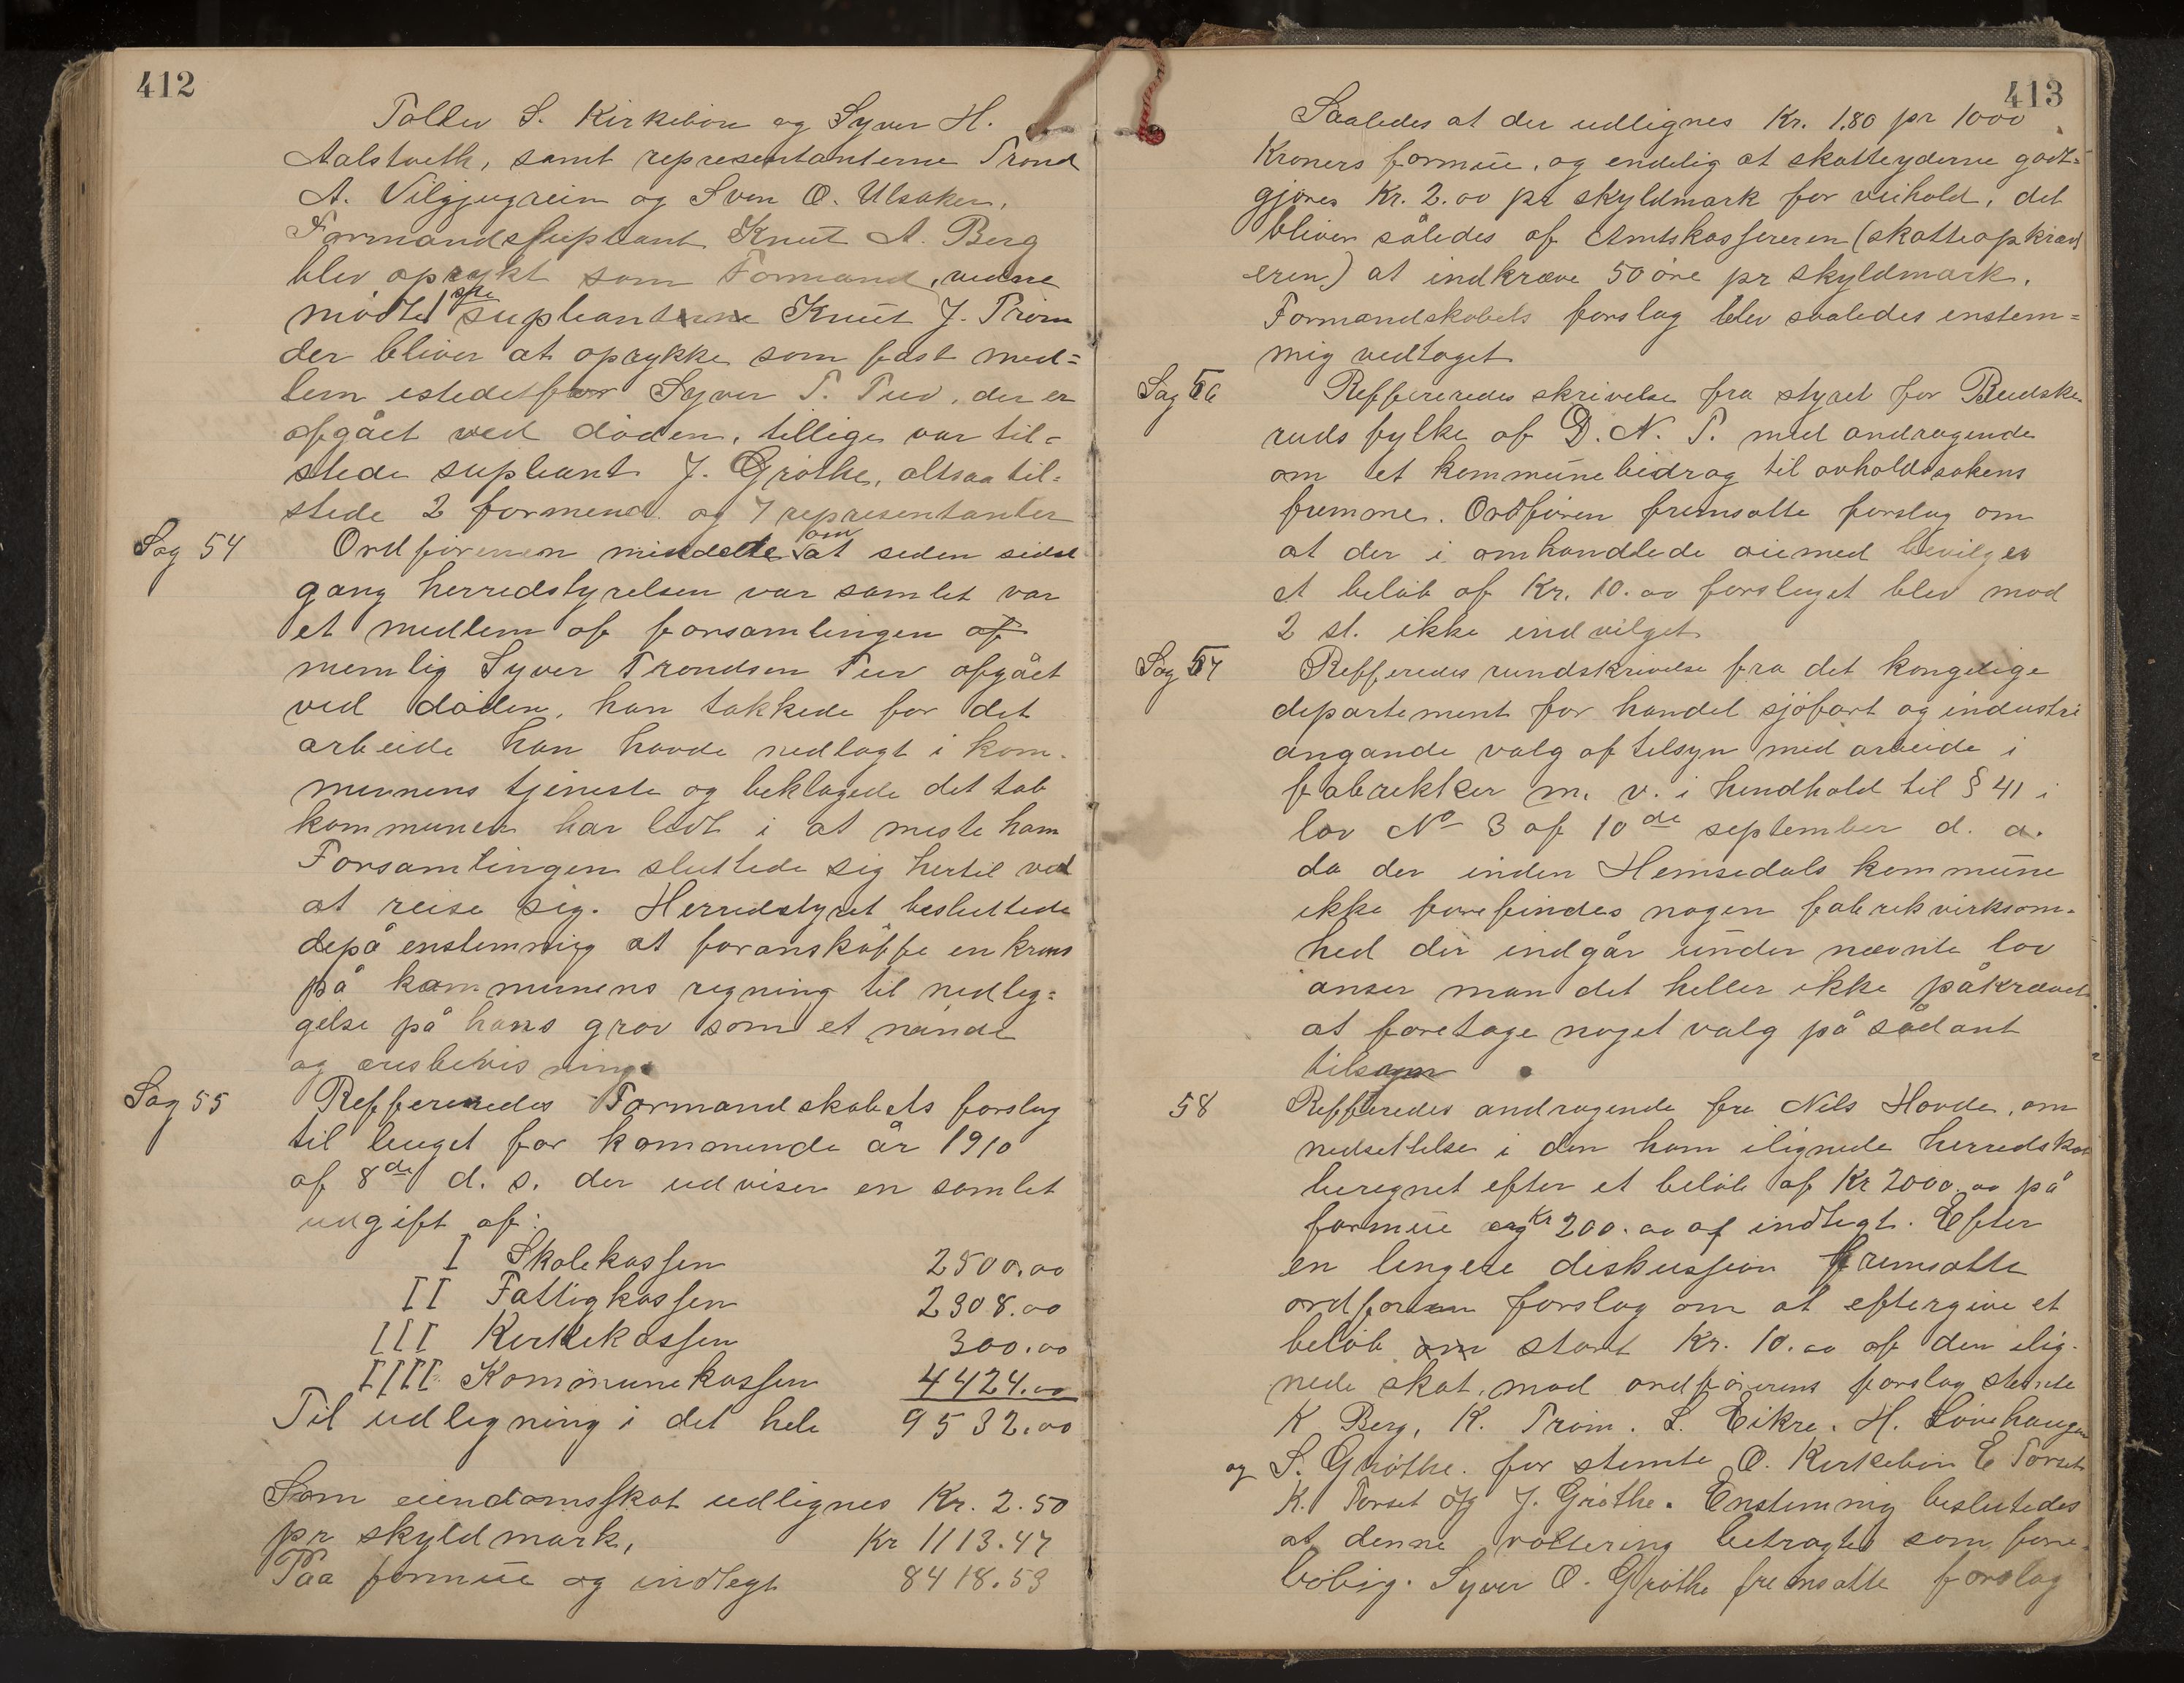 412
Tollev S. Kirkebøn og Syver H.
Aalstveth, samt representanterne Trond
A. Vilgjugrein og Sven O. Ulsaker,
Formandssupleant Knut A. Berg
blev oprykt som Formand, videre
mødte 1ste supleanterne Knut J. Trøim
der bliver at oprykke som fast med=
lem istedetfor Syver T. Tuv, der er
afgået ved døden, tillige var til=
stede supleant J. Grøthe, altsaa til=
stede 2 formend og 7 representanter
Sag 54
Ordføreren mindedte om at siden sidst
gang herredstyrelsen var samlet var
et medlem af forsamlingen af
nemlig Syver Trondsen Tuv afgået
ved døden, han takkede for det
arbeide han havde nedlagt i kom-
munens tjeneste og beklagede det tab
kommunen har lidt i at miste ham
Forsamlingen sluttede sig hertil ved
at reise sig. Herredstyret besluttede
depå enstemmig at foranskaffe en krans
på kommunens regning til nedleg=
gelse på hans grav som et minde
og æresbevisning.
Sag 55
Reffereredes Formandskabets forslag
til buget for kommende år 1910
af 8de d. s. der udviser en samlet
udgift af:
I Skolekassen 2500.00
II Fattigkassen 2308.00
III Kirkekassen 300.00
IIII Kommunekassen 4424.00
Til udligning i det hele 9532.00
Som eiendomsskat udlignes Kr. 2.50
pr skyldmark, Kr 1113.47
Paa formue og indtegt 8418.53
413
Saaledes at der udlignes Kr. 1.80 pr 1000
Kroners formue, og endelig at skatteyderne godt=
gjøres Kr. 2.00 pr skyldmark for veihold, det
bliver således af Amtskassereren (skatteopkræv
eren) at indkræve 50 øre pr skyldmark.
Formandskabets forslag blev saaledes enstem=
mig vedtaget
Sag 56
Reffereredes skrivelse fra styret for Buske
ruds fylke af D. N. T. med andragende
om et kommunebidrag til avholdssakens
fremme. Ordføren fremsatte forslag om
at der i omhandlede øiemed bevilges
et beløb af Kr. 10.00 forslaget blev mod
2 st. ikke indvilget
Sag 57
Refferedes rundskrivelse fra det kongelige
departement for handel sjøfart og industri
angande valg af tilsyn med arbeide i
fabrikker m. v. i hendhold til § 41 i
lov No 3 af 10de september d. a.
da der inden Hemsedals kommune
ikke forefindes nogen fabrikvirksom-
hed der indgår under nævnte lov
anser man det heller ikke påkrævet
at foretage noget valg på sådant
tilsyn.
58
Refferedes andragende fra Nils Hovde, om
nedsettelse i den ham ilignede herredskat
beregnet efter et beløb af Kr 2000.00 på
formue og Kr 200.00 af indtegt. Efter
en lengere diskussion fremsatte
ordføren forslag om at eftergive et
beløb om stort Kr. 10.00 af den ilig-
nede skat, mod ordførerens forslag stemte
K Berg, K. Trøim. L. Eikre. H. Løvehaugen
og S. Grøthe. for stemte O. Kirkebøn E Torset
K. Torset og J. Grøthe. Enstemmig beslutedes
at denne voltering betragtes som fore-
løbig. Syver O. Grøthe fremsatte forslag